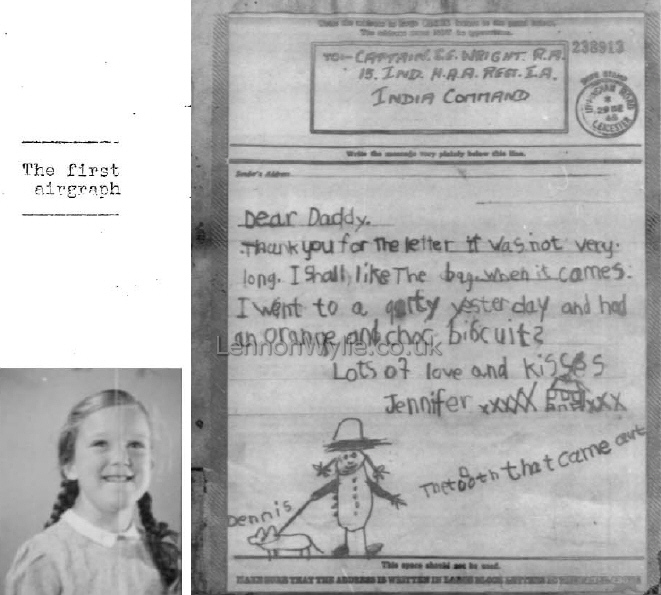 The first
airgraph
238913
TO:- CAPTAIN. I.G. WRIGHT. R.A.
15. IND. H.A.A. REGT. I.A.
INDIA COMMAND
LEICESTER
Write the message very plainly below this line.
Sender's Address
Dear Daddy.
Thank you for the letter it was not very.
long. I shall, like The bag. when it cames.
I went to a qarty yesterday and had
an orange and choc biscuits
LennonWylie.co.uk
Lots of love and kisses
Jennifer xxxxx xxx
The tooth that came out
Dennis
This space should not be used.
MAKE SURE THAT THE ADDRESS IS WRITTEN IN LARGE BLOCK LETTERS